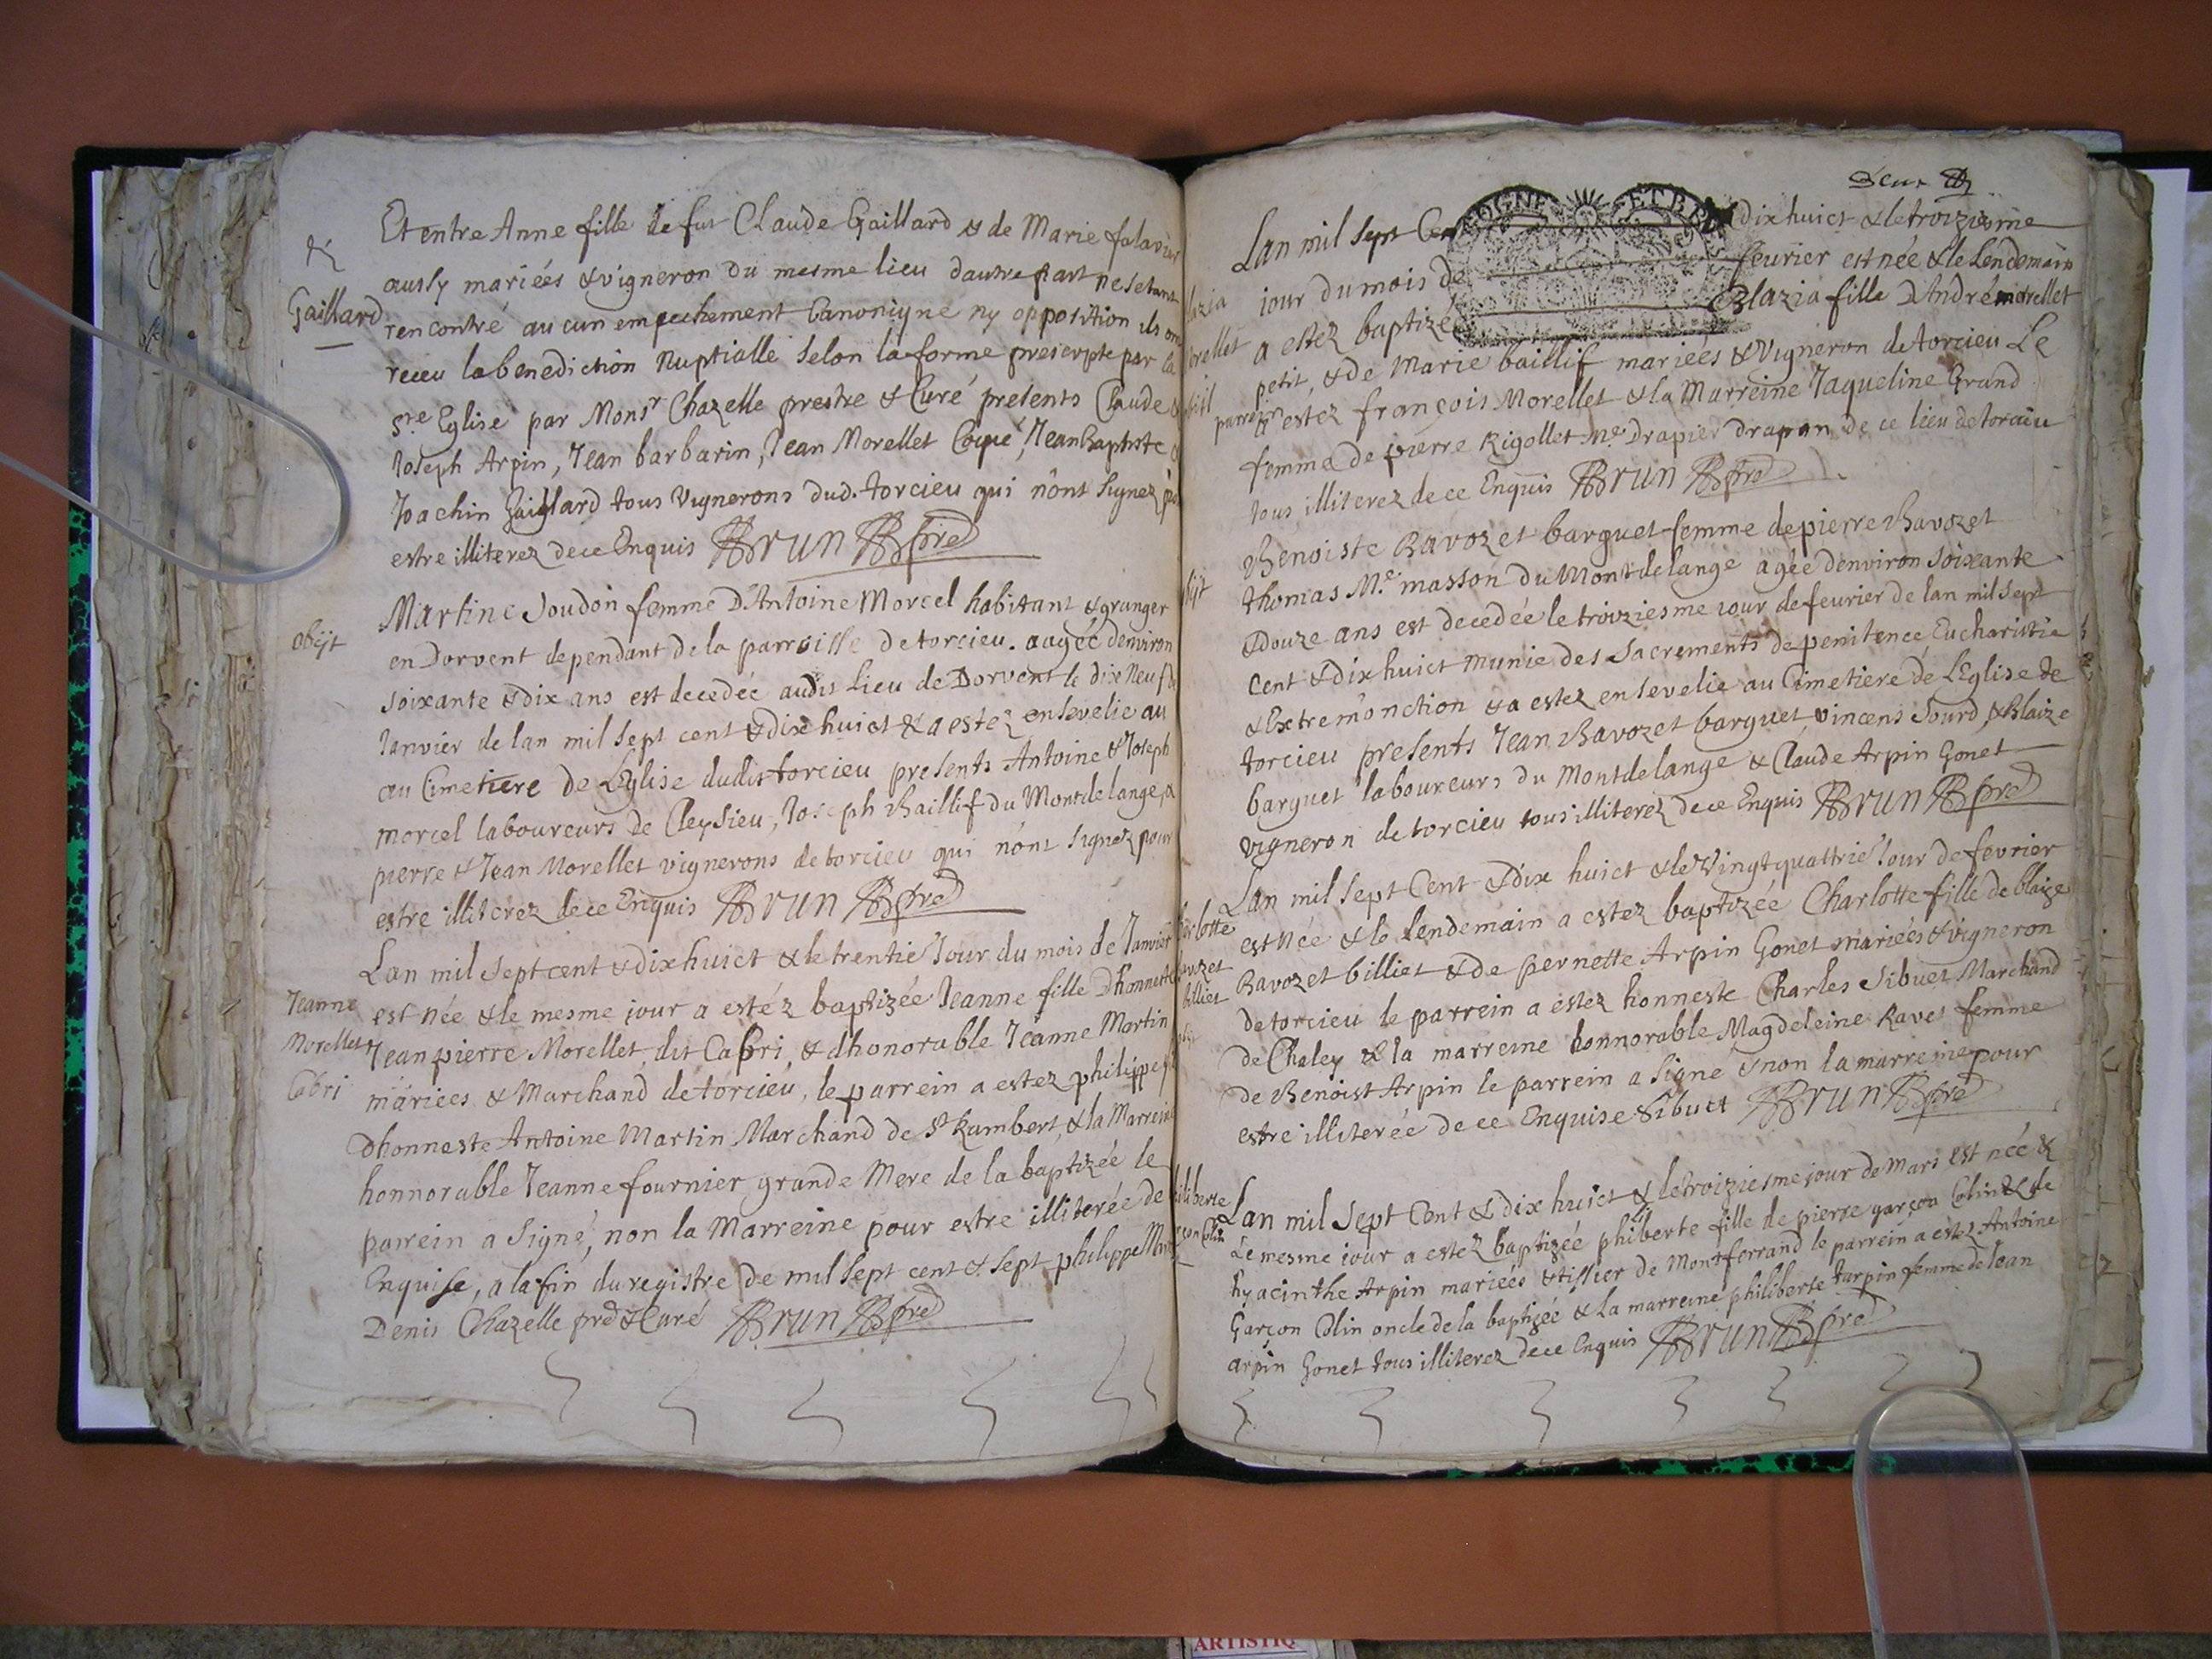 Et entre Anne fille de fut Claude Gaillard & de Marie falavier
&
aussy mariées & vigneron du mesme lieu dautre part ne sétant
Gaillard
rencontré aucun empechement Canonique ny opposition ils ont
receu la benediction Nuptialle selon la forme prescripte par la
Ste Eglise par Monsr Chazelle prestre & Curé presents Claude &
Joseph Arpin, Jean barbarin, Jean Morellet Coqué, Jean Baptiste &
Joachin Gaillard tous vignerons dud. torcieu qui n'ont signez p
estre illiterez de ce Enquis BRUN pre
Martine Joudon femme D'Antoine Morcel habitant & granger
obijt
en Dorvent dependant de la parroisse de torcieu. aagée denviron
soixante & dix ans est decedée audit Lieu de Dorvent le dix Neuf
Janvier de lan mil sept cent & dix huict & a estez ensevelie au
au Cimetiere de L'Eglise dudit torcieu presents Antoine & Joseph
morcel laboureurs de Cleysieu, Joseph Baillif du Montdelange, &
pierre & Jean Morellet vignerons de torcieu qui n'ont signez pour
estre illiterez de ce Enquis BRUN pre
Lan mil sept cent & dix huict & le trentie Jour du mois de Janvier
Jeanne
est Née & le mesme jour a estéz baptizée Jeanne fille D'honneste
Morellet
Jean pierre Morellet dit Cabri, & dhonorable Jeanne Martin
Cabri
mariees & Marchand de torcieu, le parrein a estez philippe
Dhonneste Antoine Martin Marchand de St Rambert, & la Marreine
honnorable Jeanne fournier grande Mere de la baptizée le
parrein a Signé, non la Marreine pour estre illiterée de
Enquise, a la fin du registre de mil sept cent & sept philippe
Denis Chazelle pre & Curé BRUN pre
deux
Lan mil sept Cent dix huict & le troizieme
jour du mois de feurier est née & le Lendemain
a estez baptizé Blazia fille D'André morellet
petit, & de Marie baillif mariées & Vigneron de torcieu Le
parrein a estez françois Morellet & la Marreine Jaqueline Grand
femme de pierre Rigollet me Drapier drapan de ce lieu de torcieu
tous illiterez de ce Enquis BRUN pre
Benoiste Ravozet barquet femme de pierre Bavozet
thomas Me masson du Montdelange agée denviron soixante
& Douze ans est decedée le troiziesme jour de feurier de lan mil sept
Cent & dix huict munie des Sacrements de penitence Eucharistie
& Extremonction & a estez ensevelie au Cimetiere de L'Eglise de
torcieu presents Jean Bavozet barquet, vincens Jourd, & Blaize
barquet laboureurs du Montdelange & Claude Arpin Gonet
vigneron de torcieu tous illiterez de ce Enquis BRUN pre
Lan mil sept Cent & dix huict & le Vingt quattrie Jour de fevrier
est Née & le Lendemain a estez baptizée Charlotte fille de blaize
Ravozet billiet & de pernette Arpin Gonet mariées & vigneron
de torcieu le parrein a estez honneste Charles Sibuet Marchand
de Chaley & la marreine honnorable Magdeleine Ravet femme
de Benoist Arpin le parrein a signé & non la marreine pour
estre illiterée de ce Enquise Sibuet BRUN pre
Lan mil Sept Cent & dix huict & le troiziesme jour de mars est née &
Le mesme jour a estez baptizée philiberte fille de pierre garçon Colin & de
hyacinthe Arpin mariees & tissier de Montferrand le parrein a estez Antoine
Garçon Colin oncle de la baptizée & la marreine philiberte turpin femme de Jean
arpin Gonet tous illiterez de ce Enquis BRUN pre
ARTISTIQ